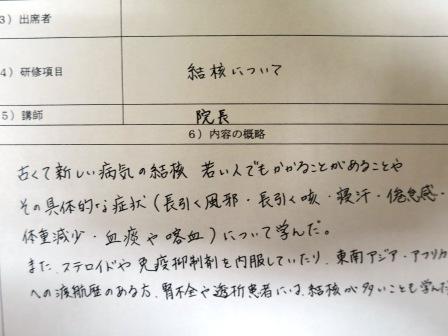 3）出席者
4）研修項目 結核について
5）講師 院長
6）内容の概略
古くて新しい病気の結核 若い人でもかかることがあることや
その具体的な症状（長引く風邪・長引く咳・寝汗・倦怠感・
体重減少・血痰や喀血）について学んだ。
また、ステロイドや免疫抑制剤を内服していたり、東南アジア・アフリカ
への渡航歴のある方、腎不全や透析患者には、結核が多いことも学んだ